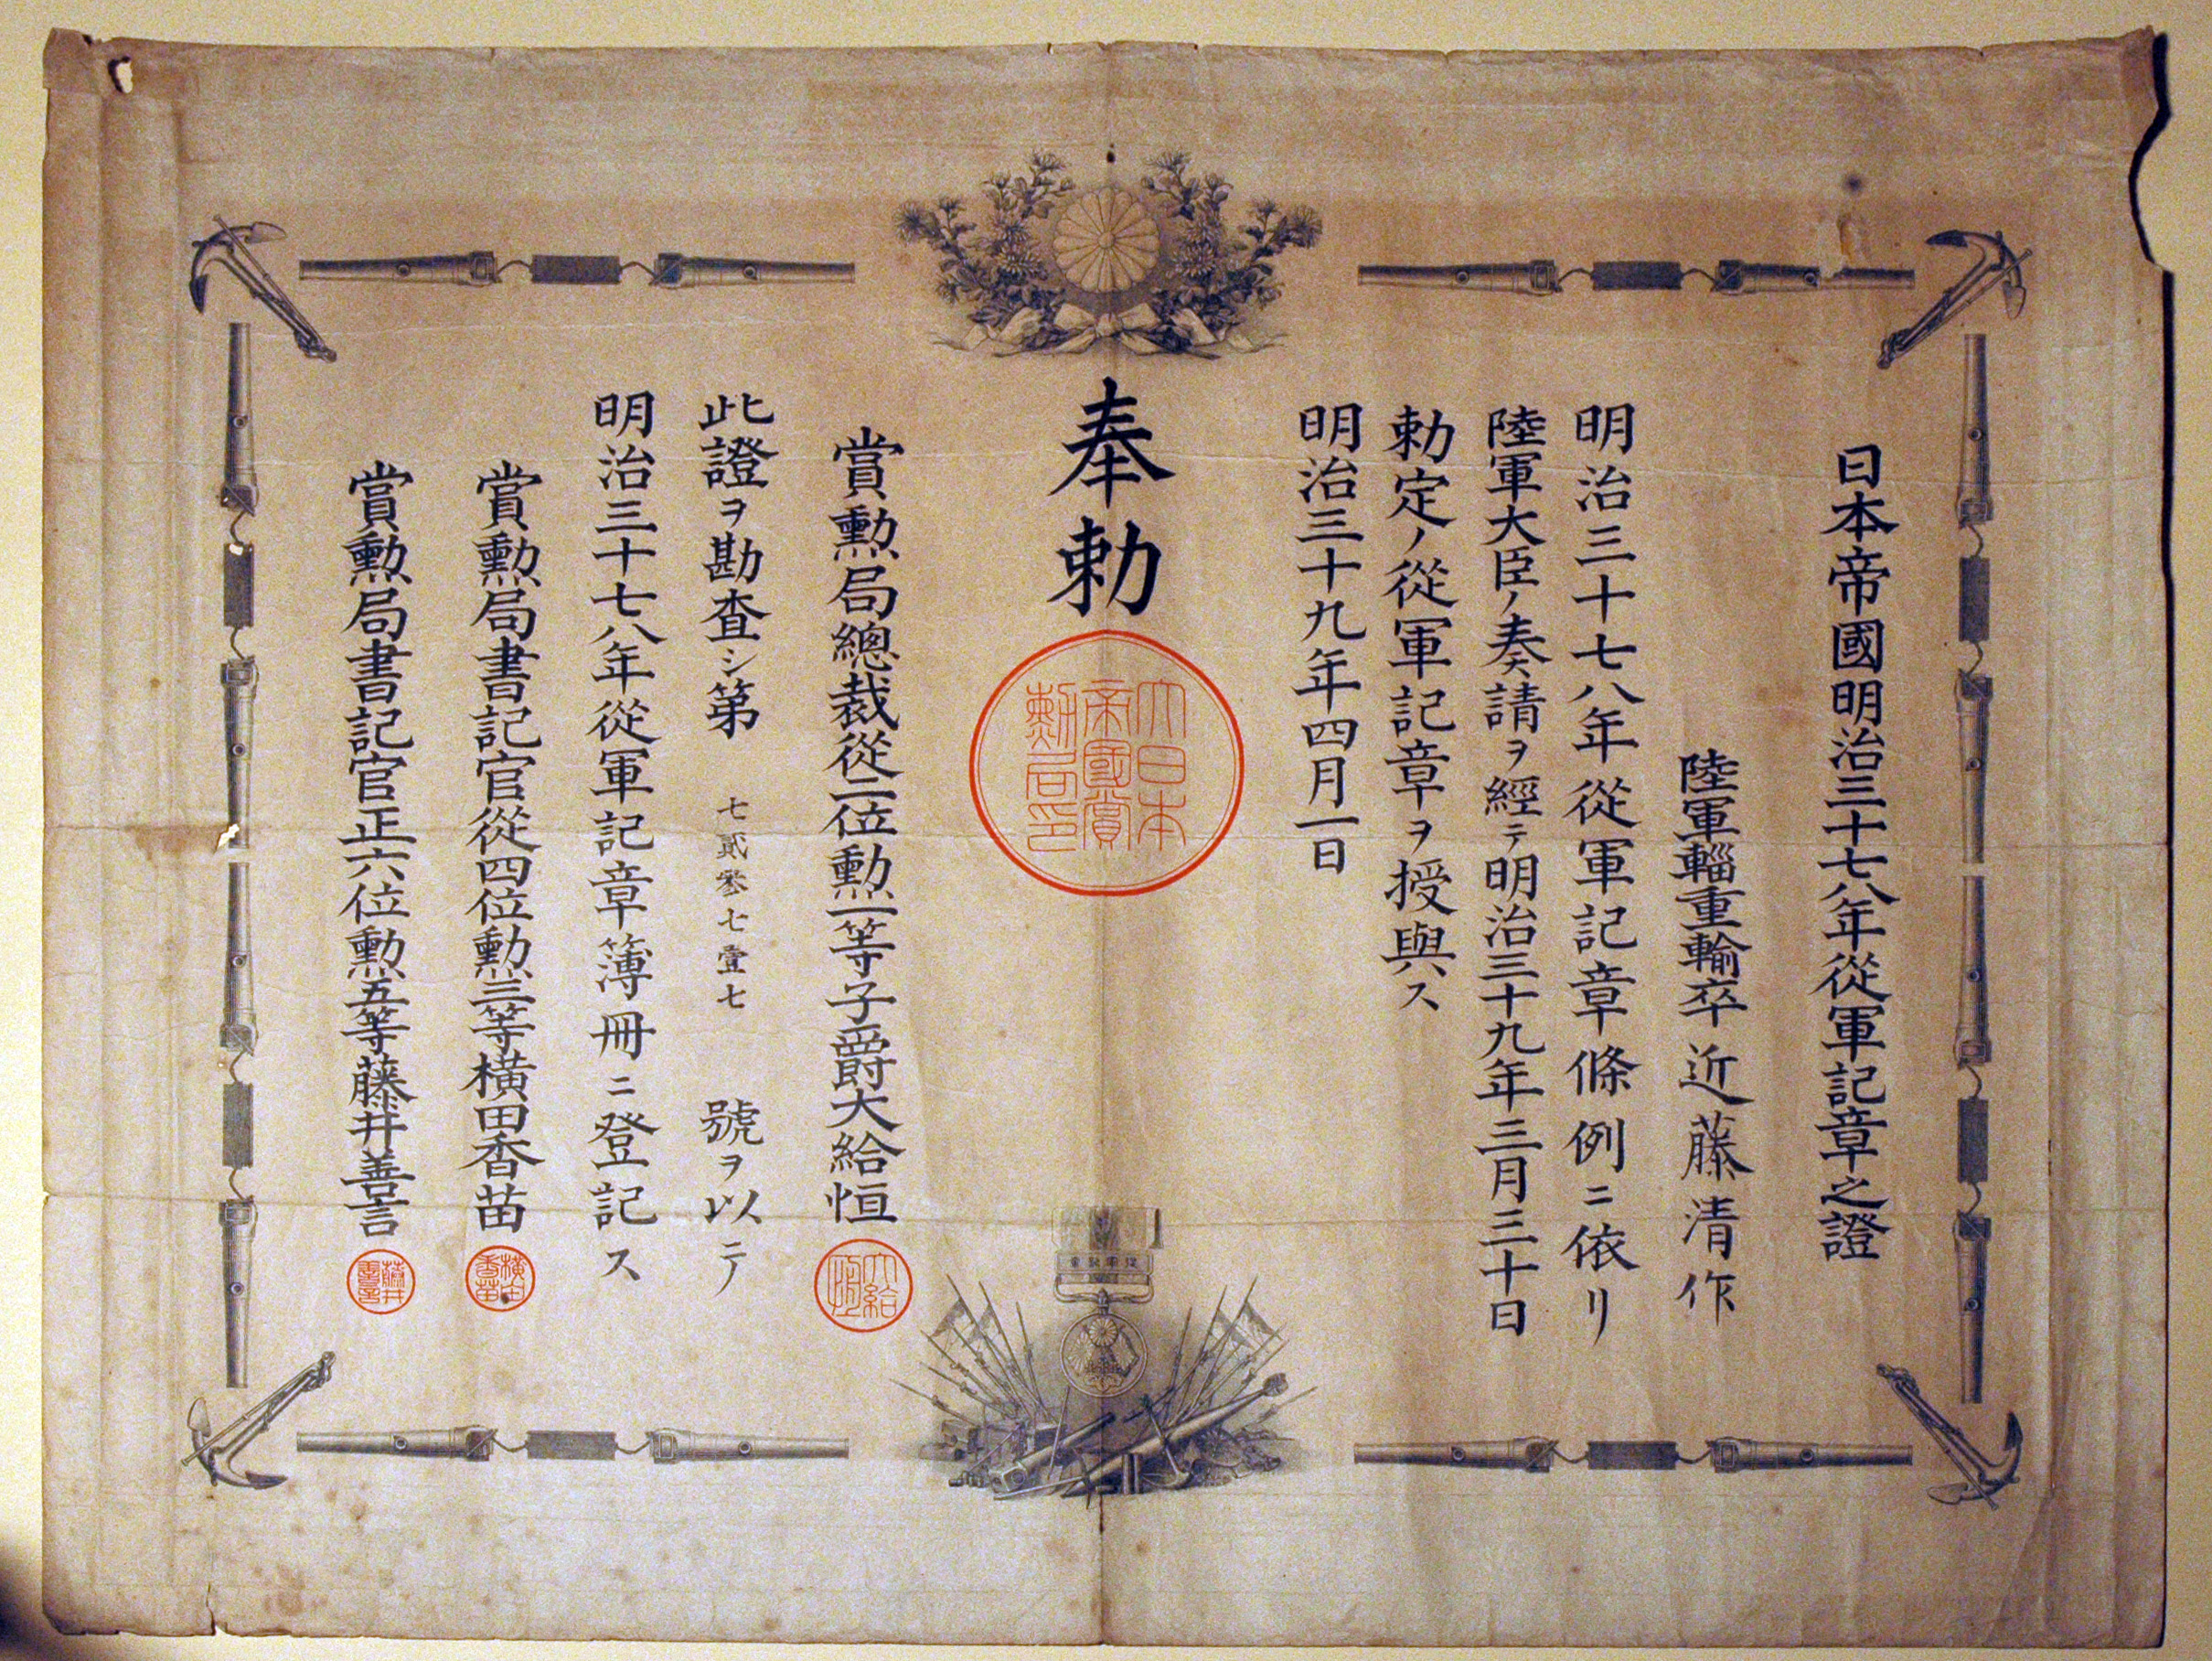 日本帝國明治三十七八年從軍記章之證
陸軍輜重輸卒近藤清作
明治三十七八年從軍記章條例ニ依リ
陸軍大臣ノ奏請ヲ經テ明治三十九年三月三十日
勅定ノ從軍記章ヲ授與ス
明治三十九年四月一日
奉勅
大日本
帝國賞
勲局印
賞勲局總裁從二位勲一等子爵大給恒
大給
恒
此證ヲ勘査シ第七貳參七壹七號ヲ以テ
明治三十七八年從軍記章簿冊ニ登記ス
賞勲局書記官從四位勲三等横田香苗
横田
香苗
賞勲局書記官正六位勲五等藤井善言
藤井
善言
從軍記章